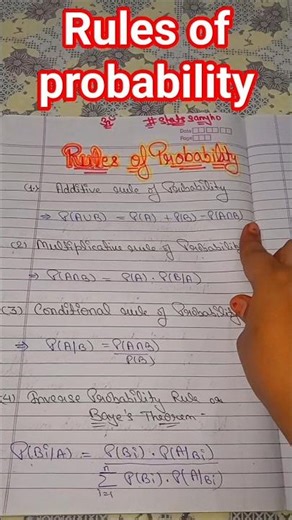 Rules of
probability
#statssangho
Date
Page
Rules of Probability
(1) Additive rule of Probability
⇒ P(A∪B) = P(A) + P(B) - P(A∩B)
(2) Multiplicative rule of Probability
⇒ P(A∩B) = P(A) · P(B/A)
(3) Conditional rule of Probability
⇒ P(A|B) = P(A∩B)
P(B)
(4) Inverse Probability Rule or
Baye's Theorem -
P(Bi/A) = P(Bi) · P(A|Bi)
n
Σ P(Bi) · P(A|Bi)
i=1